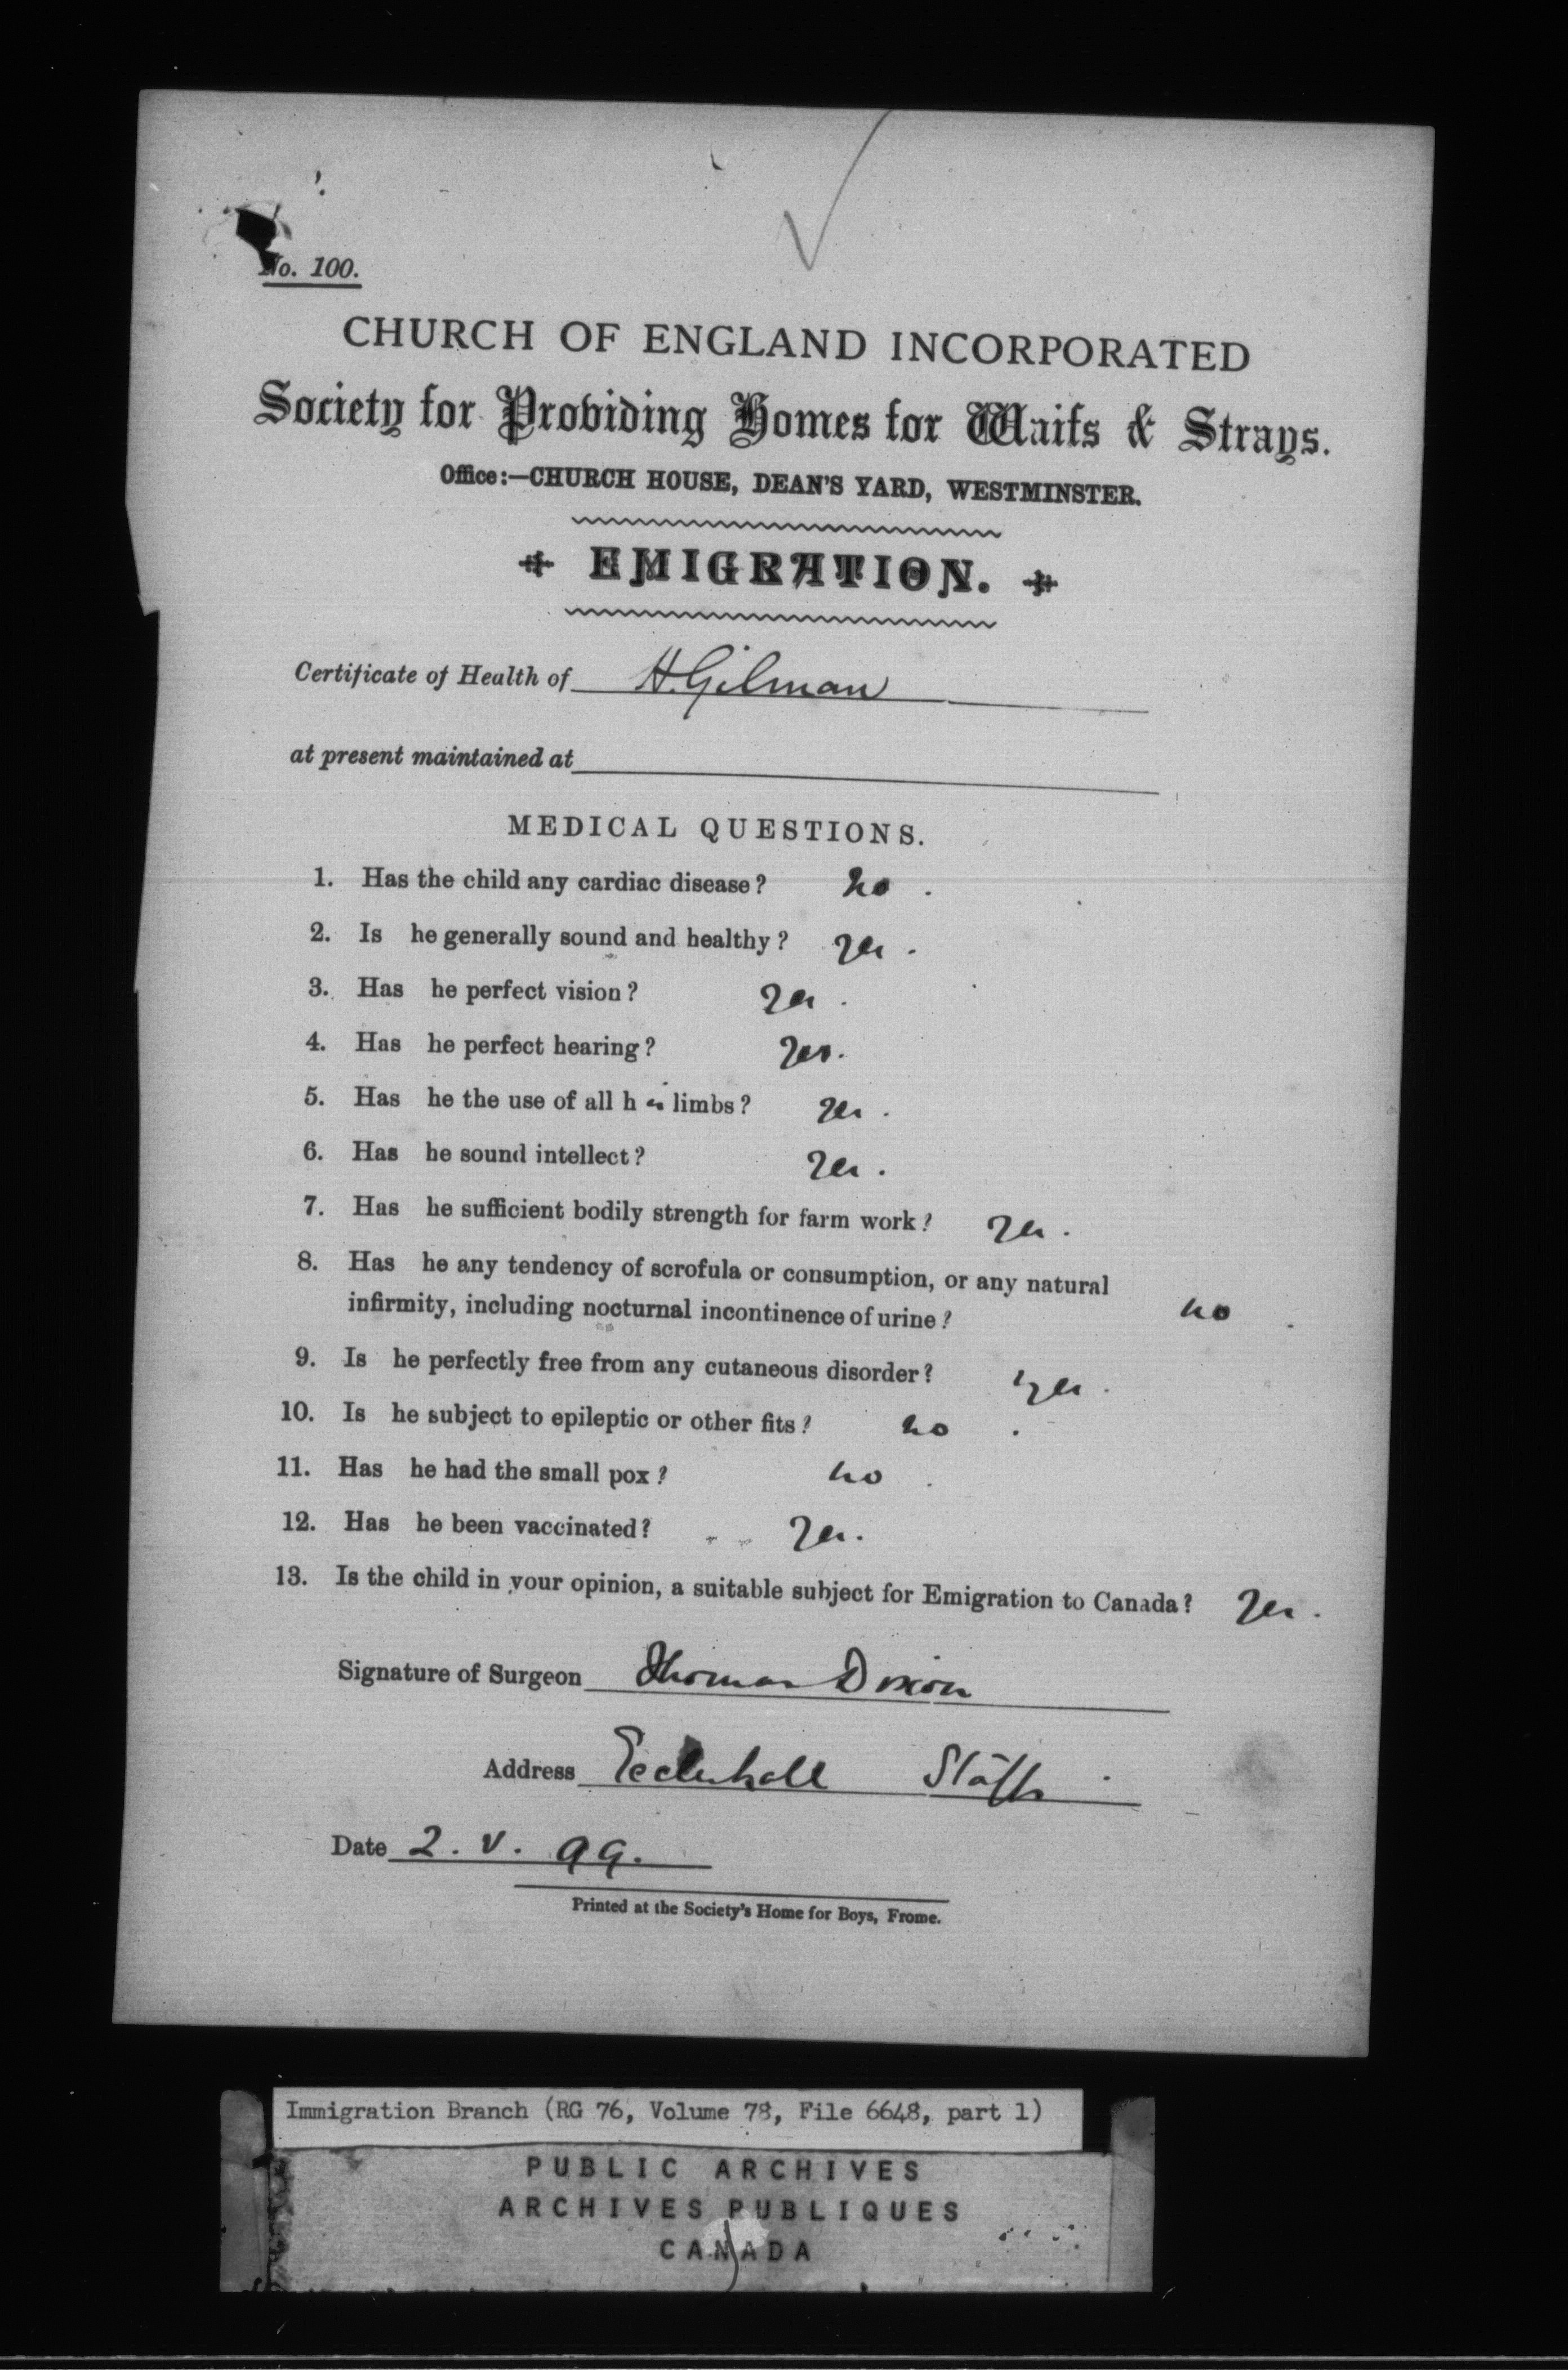 No. 100.
CHURCH OF ENGLAND INCORPORATED
Society for Providing Homes for Waifs & Strays.
Office:—CHURCH HOUSE, DEAN'S YARD, WESTMINSTER.
EMIGRATION.
Certificate of Health of H. Gilman
at present maintained at
MEDICAL QUESTIONS.
1. Has the child any cardiac disease? no.
2. Is he generally sound and healthy? yes.
3. Has he perfect vision? yes.
4. Has he perfect hearing? yes.
5. Has he the use of all his limbs? yes.
6. Has he sound intellect? yes.
7. Has he sufficient bodily strength for farm work? yes.
8. Has he any tendency of scrofula or consumption, or any natural
infirmity, including nocturnal incontinence of urine? no.
9. Is he perfectly free from any cutaneous disorder? yes.
10. Is he subject to epileptic or other fits? no.
11. Has he had the small pox? no.
12. Has he been vaccinated? yes.
13. Is the child in your opinion, a suitable subject for Emigration to Canada? yes.
Signature of Surgeon Thomas Dixon
Address Eccleshall Staffs.
Date 2. V. 99.
Printed at the Society's Home for Boys, Frome.
Immigration Branch (RG 76, Volume 78, File 6648, part 1)
PUBLIC ARCHIVES
ARCHIVES PUBLIQUES
CANADA